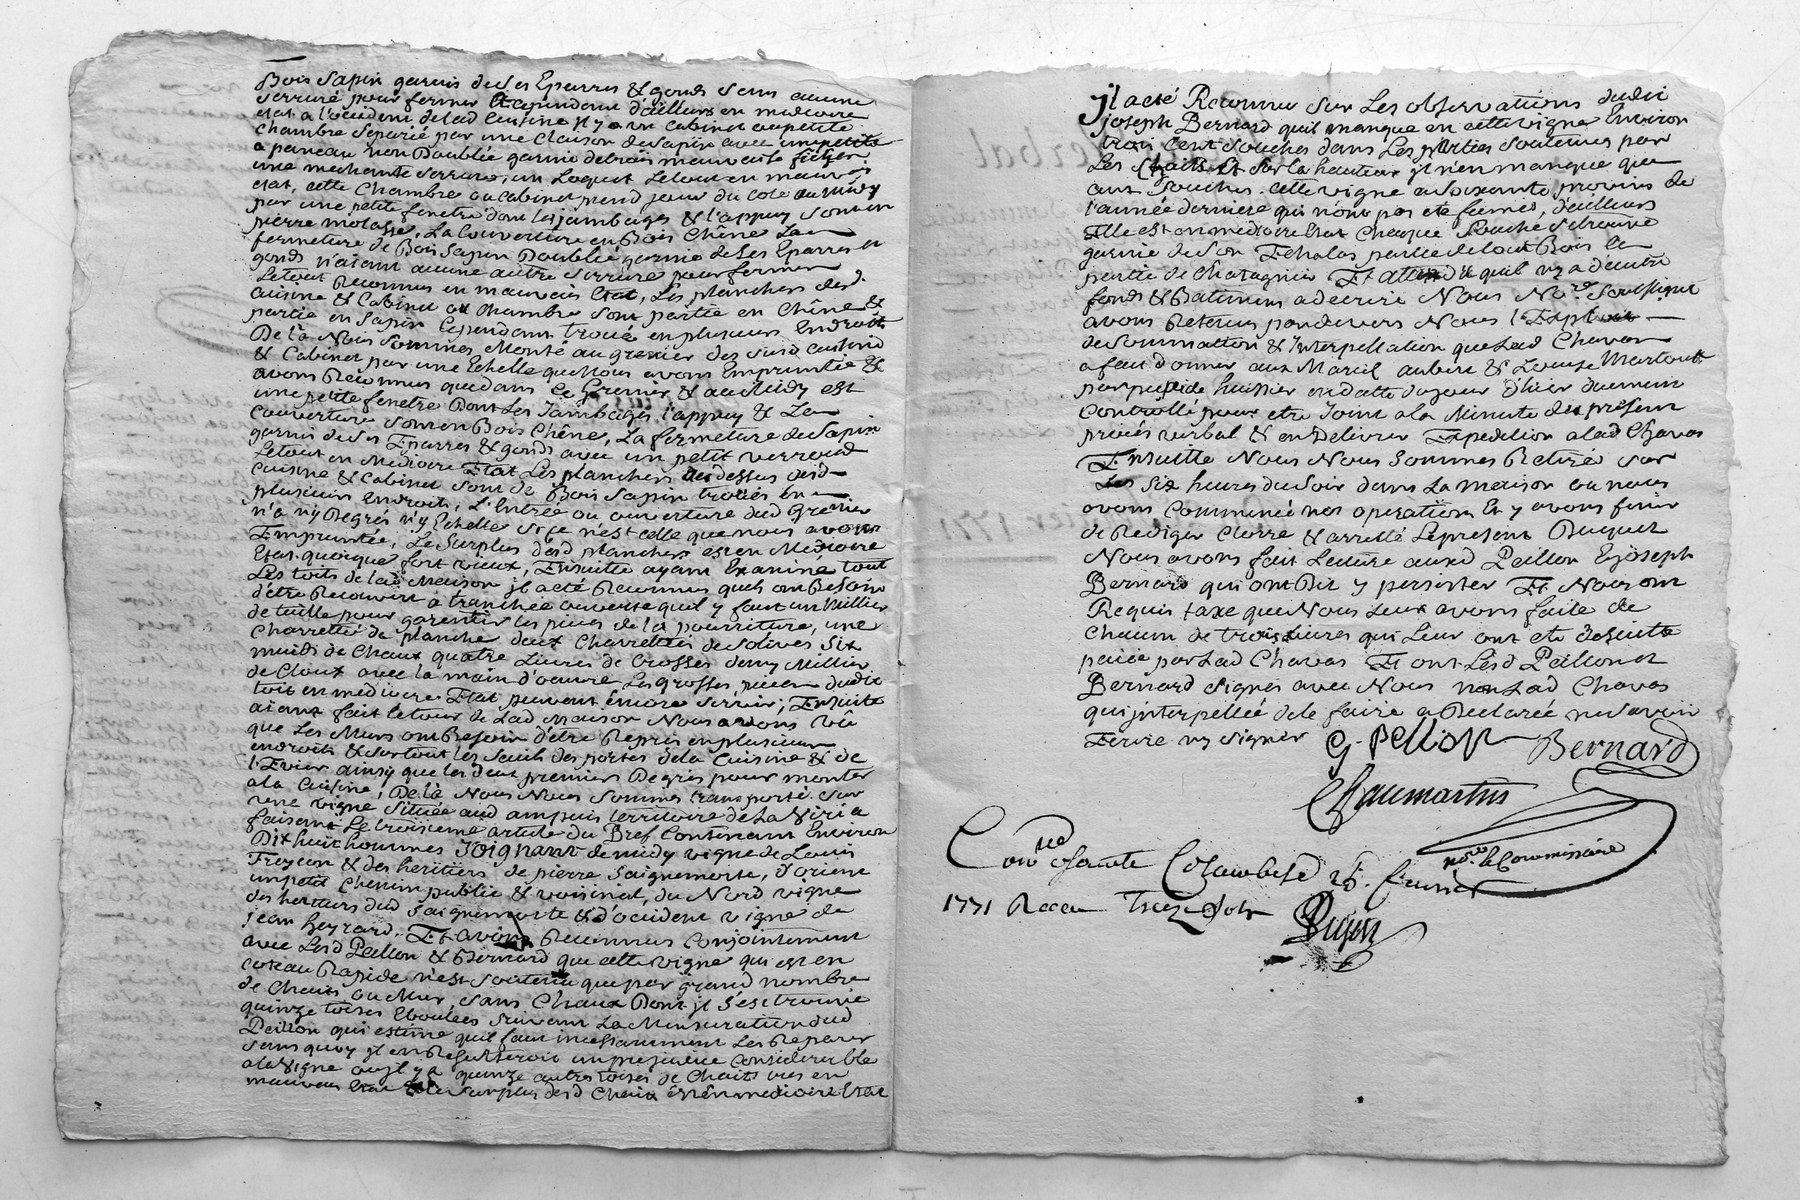 Bois Sapin garnis de Ses Eparres & gonds sans aucune
serrure pour fermer Et cependant d'ailleurs en mediocre
etat a l'occident de lad Cuisine Il y a un Cabinet ou petite
chambre separée par une cloison de Sapin avec une petite
a paneau non Doublée garnie de trois mauvaise fiches
une mechante serrure, un Loquet Le tout en mauvais
etat, cette Chambre ou Cabinet prend jour du coté du midy
par une petite fenetre dont les jambages & l'appuy sont en
pierre molasse, La Couverture en Bois Chêne La
fermeture de Bois Sapin Doublée garnie de Ses Eparres et
gonds n'aiant aucune autre serrure pour fermer
Le tout Reconnus en mauvais Etat, Les planchers desd.
cuisine & Cabinet ou Chambre sont partie en Chêne &
partie en Sapin Cependant troué en plusieurs Endroits
De là Nous Sommes Monté au grenier des susd cuisine
& Cabinet par une Echelle que Nous avons Empruntée &
avons Reconnus que dans Ce Grenier & au Midy est
une petite fenetre Dont Les Jambages l'appuy & La
couverture sont en Bois Chêne, La fermeture de Sapin
garnis de Ses Eparres & gonds avec un petit verroud
Le tout en Mediocre Etat Les planchers au dessus desd
cuisine & Cabinet sont de Bois Sapin troués En
plusieurs Endroits, L'Entrée ou ouverture dud Grenier
n'a n'y Degrés n'y Echelle si ce n'est celle que nous avons
Empruntée, Le Surplus desd planchers est en Mediocre
Etat quoique fort vieux, Ensuitte ayant Examiné tout
Les toits de lad Maison Il a eté Reconnus quels ont Besoin
d'être Recouvert a tranchée ouverte quil y faut un Millier
de tuille pour garentir les pieces de la pourriture, une
Charrettée de planche deux Charrettées de solives Six
muids de Chaux quatre Livres de Crosses demy Millier
de Cloux avec la main d'oeuvre Les grosses pieces dudit
toit en mediocre Etat peuvent encore servir, Ensuite
aiant fait le tour de Lad Maison Nous avons vû
que Les Murs ont Besoin d'être Repris en plusieurs
endroits & surtout les seuils des portes de la Cuisine & de
l'Evier ainsy que les deux premiers Degrés pour monter
a la Cuisine, De là Nous Nous sommes transporté sur
une vigne Située aud ampuis territoire de La Viria
faisant Le troisieme article du Bref Contenant Environ
Dix huit hommes Joignant de midy vigne de Louis
Freycon & des heritiers de pierre Saignemorte, d'orient
un petit Chemin public & voisinal, du Nord vigne
des heritiers dud Saignemorte & d'occident vigne de
jean heyrard. Et avons Reconnus Conjointement
avec Lesd Peillon & Bernard que cette vigne qui est en
coteau Rapide n'est Soutenu que par grand nombre
de Chaits ou Mur, sans Chaux Dont Il s'est trouvé
quinze toises Eboulées Suivant La Mensuration dud
Peillon qui estime quil faut incessamment Les Reparer
sans quoy Il en Resulteroit un prejudice Considerable
a la vigne ou Il y a quinze autres toises de Chaits vus en
mauvais Etat & Le surplus desd Chaits est en mediocre Etat
Il a eté Reconnu sur Les observations dudit
joseph Bernard quil manque en cette vigne Environ
trois Cent Souches dans Les parties soutenues par
Les Chaits Et sur la hauteur il n'en manque que
cent Souches. cette vigne a Soixante provins de
l'année derniere qui n'ont pas eté fumés, d'ailleurs
Elle est en mediocre Etat Chaque Souche se trouve
garnie de Son Echalas partie de tout Bois la
partie de Chatagnier Et attendu quil n'y a d'autre
fonds & Batimens a decrire Nous No.re Soussigné
avons Retenus pardevers Nous l'Exploit
de sommation & Interpellation que Lad Chavas
a fait donner aux Mariés aubert & Louise Martoutt
par pupide huissier en datte du jour d'hier duement
Controllé pour etre Joint a la Minute du present
procés verbal & en Delivrer Expedition a lad Chavas
Ensuitte Nous Nous sommes Retiré sur
Les six heures du soir dans La maison ou nous
avons Commencé nos operations Et y avons fini
de Rediger Clorre & arretté Le present Duquel
Nous avons fait Lecture auxd Peillon & joseph
Bernard qui ont Dit y persister Et Nous ont
Requis taxe que Nous Leur avons faite de
Chacun de trois Livres qui Leur ont eté de suitte
paiée par Lad Chavas Et ont Lesd Peillon et
Bernard signés avec Nous non Lad Chavas
qui interpellée de le faire a Declarée ne savoir
Ecrire ny signer G. Pellon Bernard
Chaumartin
no.re & Commissaire
Con.lle a Sainte Colombe le 25. fevrier
1771 Receu Treize Sols